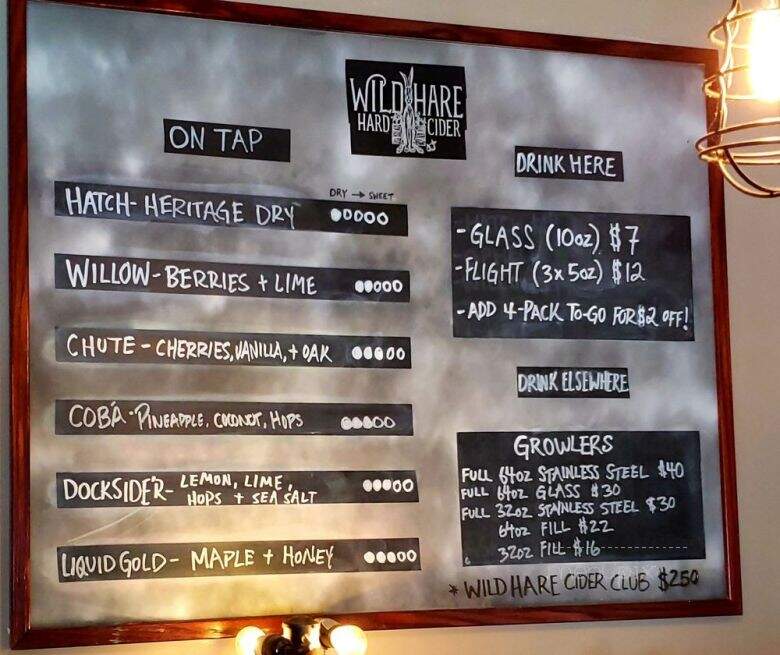 WILD HARE
HARD CIDER
ON TAP
DRY → SWEET
HATCH- HERITAGE DRY
WILLOW- BERRIES + LIME
CHUTE - CHERRIES, VANILLA, + OAK
COBÁ - PINEAPPLE, COCONUT, HOPS
DOCKSIDER- LEMON, LIME,
HOPS + SEA SALT
LIQUID GOLD - MAPLE + HONEY
DRINK HERE
- GLASS (10oz) $7
- FLIGHT (3x5oz) $12
- ADD 4-PACK TO-GO FOR $2 OFF!
DRINK ELSEWHERE
GROWLERS
FULL 64oz STAINLESS STEEL $40
FULL 64oz GLASS $30
FULL 32oz STAINLESS STEEL $30
64oz FILL $22
32oz FILL $16
* WILD HARE CIDER CLUB $250